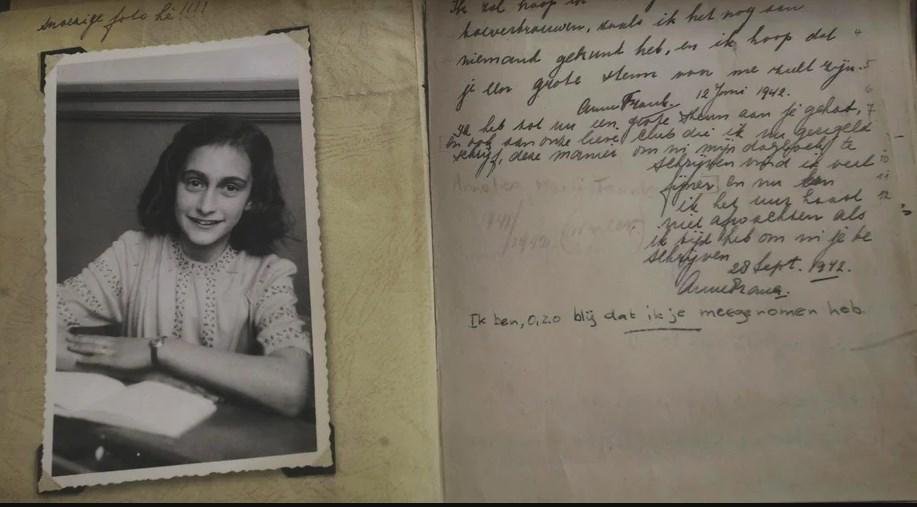 snoezige foto hé!!!!
Ik zal hoop ik
toevertrouwen, zoals ik het nog aan
niemand gekund heb, en ik hoop dat 4
je een grote steun voor me zult zijn. 5
Anne Frank. 12 Juni 1942. 6
Ik heb tot nu een grote steun aan je gehad, 7
en ook aan onze lieve club die ik nu geregeld
schrijf, deze manier om in mijn dagboek te
schrijven vind ik veel 10
fijner en nu kan 11
ik het uur haast 12
niet afwachten als
ik tijd heb om in je te
schrijven
28 Sept. 1942.
Anne Frank.
Ik ben, O, zo blij dat ik je meegenomen heb.